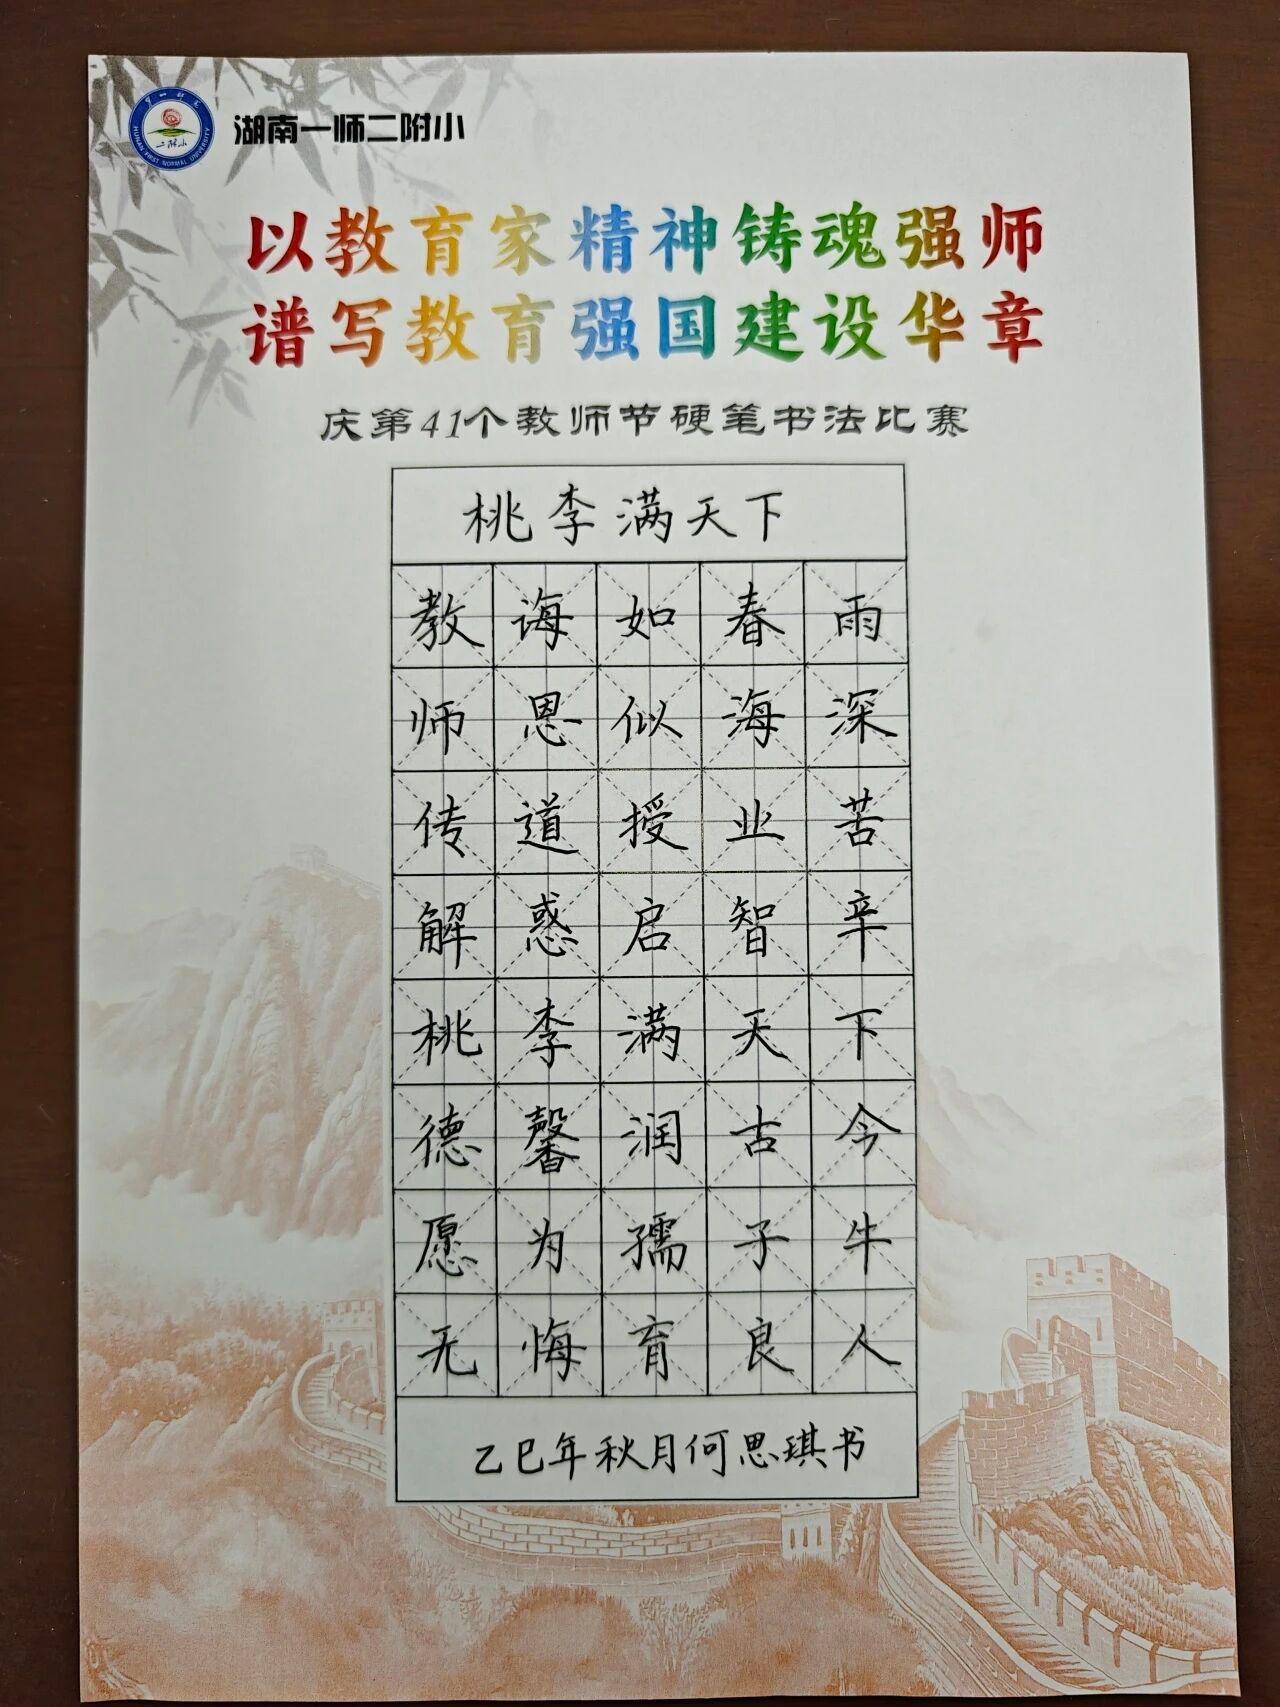 湖南一师二附小
HUNAN FIRST NORMAL UNIVERSITY
二附小
以教育家精神铸魂强师
谱写教育强国建设华章
庆第41个教师节硬笔书法比赛
桃李满天下
教诲如春雨
师恩似海深
传道授业苦
解惑启智辛
桃李满天下
德馨润古今
愿为孺子牛
无悔育良人
乙巳年秋月何思琪书